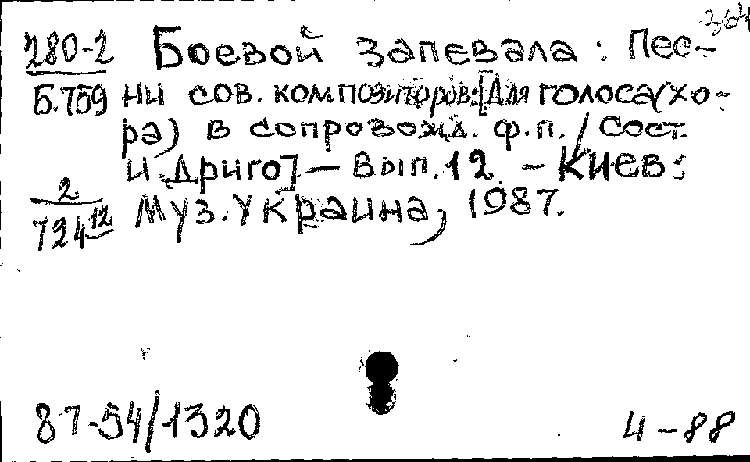 364
280-2 Боевой запевала: Пес-
Б.759 ни сов. композиторов: [Для голоса (хо-
ра) в сопровожд. ф.п. / Сост.
И. Дриго] — Вып. 12. – Киев:
2
724 12 Муз. Украина, 1987.
87-54/1320
4-88